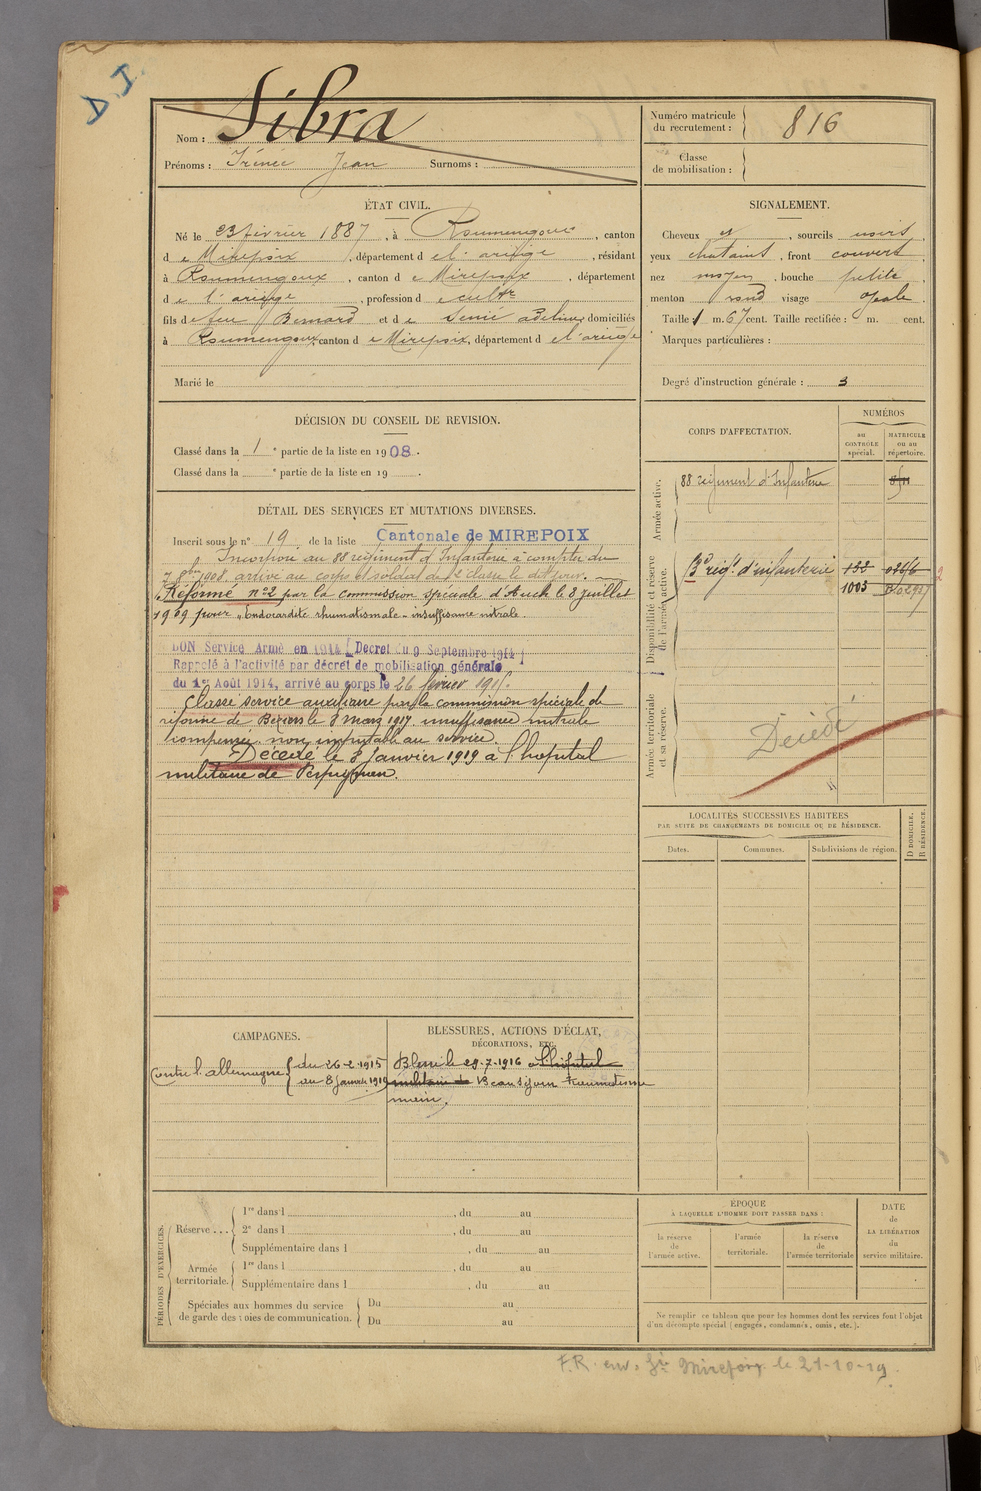 D. J.
Nom : Sibra
Prénoms : Irénée Jean Surnoms :
Numéro matricule du recrutement : 816
Classe de mobilisation :
ÉTAT CIVIL.
Né le 23 février 1887, à Roumengoux, canton
de Mirepoix, département de l'ariège, résidant
à Roumengoux, canton de Mirepoix, département
de l'ariège, profession de cultr
fils de feu Bernard et de Senié adeline domiciliés
à Roumengoux, canton de Mirepoix, département de l'ariège
Marié le
SIGNALEMENT.
Cheveux et, sourcils noirs,
yeux chatains, front couvert
nez moyen, bouche petite
menton rond visage ovale
Taille : 1 m. 67 cent. Taille rectifiée : m. cent.
Marques particulières :
Degré d'instruction générale : 3
DÉCISION DU CONSEIL DE REVISION.
Classé dans la 1e partie de la liste en 1908.
Classé dans la e partie de la liste en 19 .
DÉTAIL DES SERVICES ET MUTATIONS DIVERSES.
Inscrit sous le n° 19 de la liste Cantonale de MIREPOIX
Incorporé au 88 régiment d'Infanterie à compter du
7 8bre 1908. arrivé au corps et soldat de 2e classe le dit jour.
Réformé n°2 par la commission spéciale d'Auch le 8 juillet
1909 pour "Endocardite rhumatismale - insuffisance mitrale.
BON Service Armé en 1914 [Decret du 9 Septembre 1914]
Rappelé à l'activité par décret de mobilisation générale
du 1er Août 1914, arrivé au corps le 26 février 1915.
Classé service auxiliaire par la commission spéciale de
réforme de Béziers le 8 mars 1917 insuffisance mitrale
compensée. non imputable au service.
Décédé le 8 Janvier 1919 à l'hopital
militaire de Perpignan.
CORPS D'AFFECTATION.
NUMÉROS
au CONTROLE spécial.
MATRICULE ou au répertoire.
Armée active.
88 régiment d'Infanterie
Disponibilité et réserve de l'armée active.
3e régt. d'infanterie 152
1003
2
Armée territoriale et sa réserve.
Décédé
LOCALITÉS SUCCESSIVES HABITÉES
PAR SUITE DE CHANGEMENTS DE DOMICILE OU DE RÉSIDENCE.
Dates. Communes. Subdivisions de région. D DOMICILE. R RÉSIDENCE.
CAMPAGNES.
Contre l'allemagne { du 26-2-1915
au 8 Janvier 1919
BLESSURES, ACTIONS D'ÉCLAT,
DÉCORATIONS, ETC.
Blessé le 29-7-1916 à l'hôpital
militaire de Beauséjour
main.
PÉRIODES D'EXERCICES.
Réserve ... 1re dans l , du au
2e dans l , du au
Supplémentaire dans l , du au
Armée territoriale. 1re dans l , du au
Supplémentaire dans l , du au
Spéciales aux hommes du service de garde des voies de communication. Du au
Du au
ÉPOQUE
À LAQUELLE L'HOMME DOIT PASSER DANS :
la réserve de l'armée active.
l'armée territoriale.
la réserve de l'armée territoriale
DATE de LA LIBÉRATION du service militaire.
Ne remplir ce tableau que pour les hommes dont les services font l'objet
d'un décompte spécial (engagés, condamnés, omis, etc.).
F.R. env. Gie Mirepoix le 21-10-19.